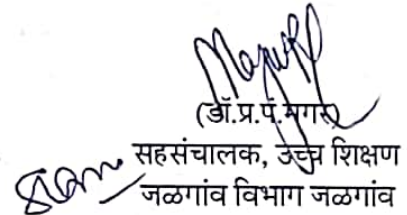 (डॉ.प्र.पं.मगरे)
सहसंचालक, उच्च शिक्षण
जळगांव विभाग जळगांव